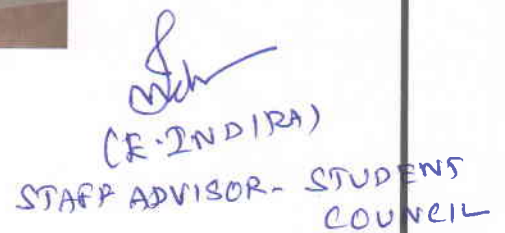 (E. INDIRA)
STAFF ADVISOR - STUDENT
COUNCIL